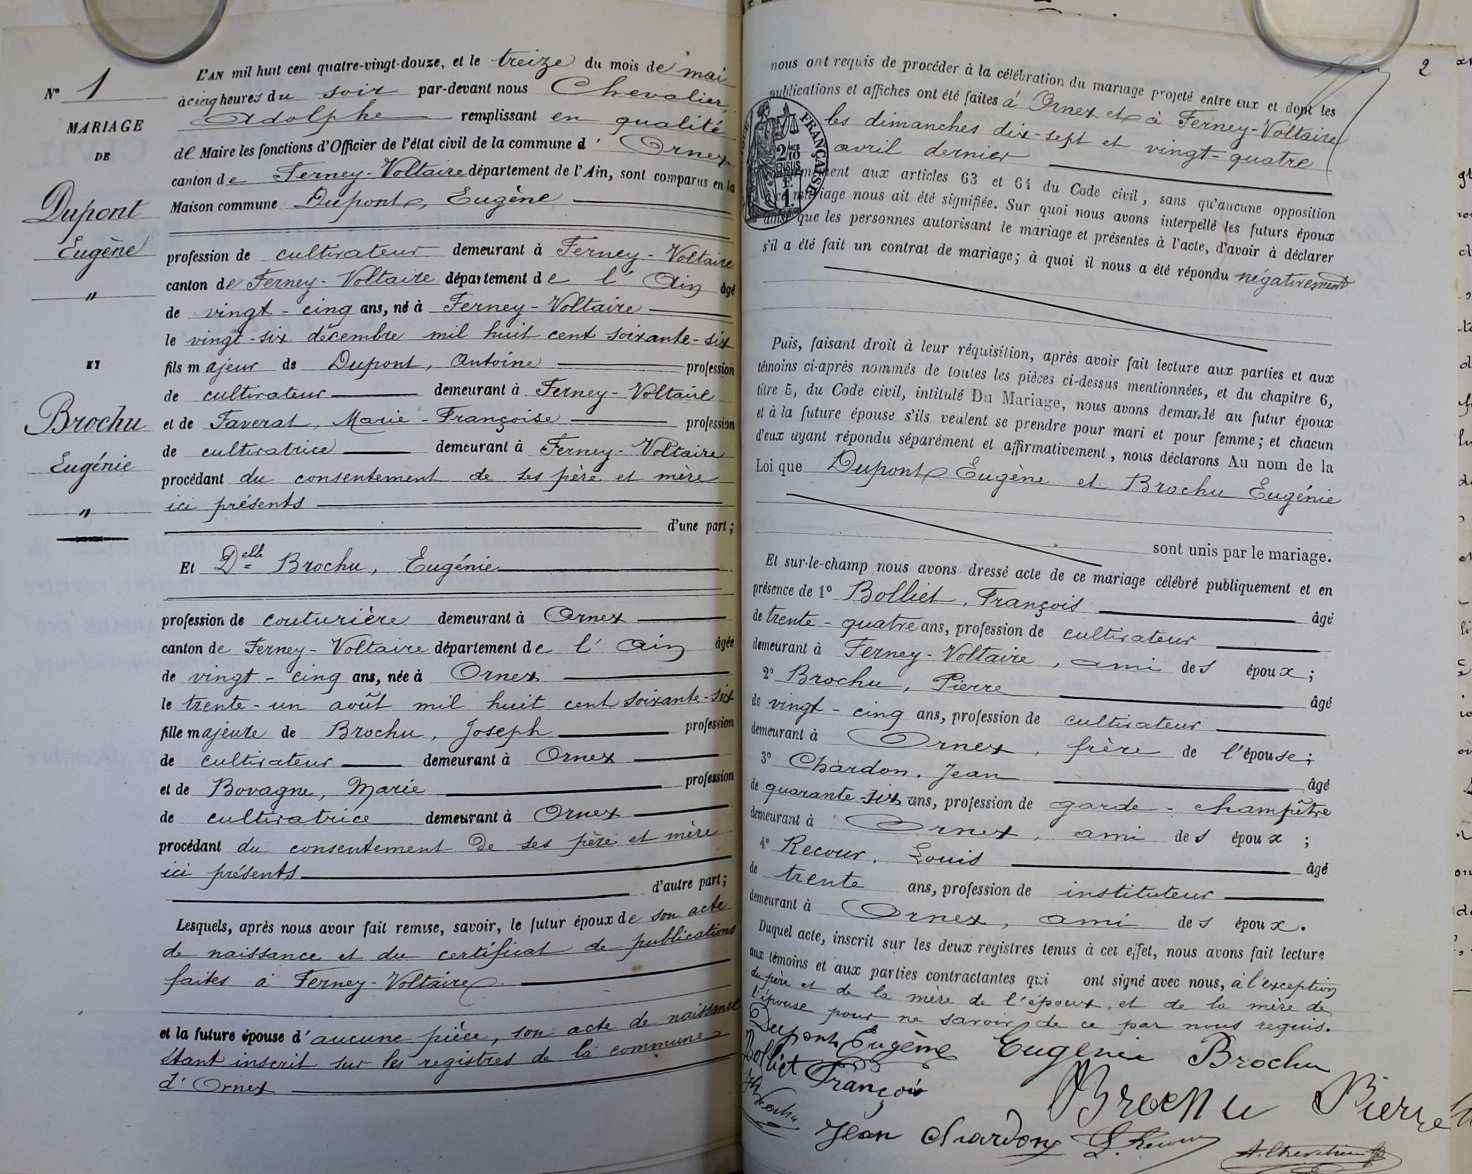 N° 1
MARIAGE
DE
Dupont
Eugène
"
ET
Brochu
Eugénie
"
L'AN mil huit cent quatre-vingt-douze, et le treize du mois de mai
à cinq heures du soir par-devant nous Chevalier,
Adolphe remplissant en qualité
de Maire les fonctions d'Officier de l'état civil de la commune d'Ornex
canton de Ferney-Voltaire département de l'Ain, sont comparus en la
Maison commune Dupont, Eugène
profession de cultivateur demeurant à Ferney-Voltaire
canton de Ferney-Voltaire département de l'Ain âgé
de vingt-cinq ans, né à Ferney-Voltaire
le vingt-six décembre mil huit cent soixante-six
fils majeur de Dupont, Antoine profession
de cultivateur demeurant à Ferney-Voltaire
et de Faverat, Marie-Françoise profession
de cultivatrice demeurant à Ferney-Voltaire
procédant du consentement de ses père et mère
ici présents
d'une part;
Et Delle Brochu, Eugénie
profession de couturière demeurant à Ornex
canton de Ferney-Voltaire département de l'Ain âgée
de vingt-cinq ans, née à Ornex
le trente-un août mil huit cent soixante-six
fille majeure de Brochu, Joseph profession
de cultivateur demeurant à Ornex
et de Bovagne, Marie profession
de cultivatrice demeurant à Ornex
procédant du consentement de ses père et mère
ici présents
d'autre part;
Lesquels, après nous avoir fait remise, savoir, le futur époux de son acte
de naissance et du certificat de publications
faites à Ferney-Voltaire
et la future épouse d'aucune pièce, son acte de naissance
étant inscrit sur les registres de la commune
d'Ornex
2
nous ont requis de procéder à la célébration du mariage projeté entre eux et dont les
publications et affiches ont été faites à Ornex et à Ferney-Voltaire
les dimanches dix-sept et vingt-quatre
avril dernier
FRANÇAISE
aux articles 63 et 64 du Code civil, sans qu'aucune opposition
mariage nous ait été signifiée. Sur quoi nous avons interpellé les futurs époux
ainsi que les personnes autorisant le mariage et présentes à l'acte, d'avoir à déclarer
s'il a été fait un contrat de mariage; à quoi il nous a été répondu négativement
Puis, faisant droit à leur réquisition, après avoir fait lecture aux parties et aux
témoins ci-après nommés de toutes les pièces ci-dessus mentionnées, et du chapitre 6,
titre 5, du Code civil, intitulé Du Mariage, nous avons demandé au futur époux
et à la future épouse s'ils veulent se prendre pour mari et pour femme; et chacun
d'eux ayant répondu séparément et affirmativement, nous déclarons Au nom de la
Loi que Dupont Eugène et Brochu Eugénie
sont unis par le mariage.
Et sur-le-champ nous avons dressé acte de ce mariage célébré publiquement et en
présence de 1° Bolliet, François âgé
de trente-quatre ans, profession de cultivateur
demeurant à Ferney-Voltaire, ami des époux;
2° Brochu, Pierre âgé
de vingt-cinq ans, profession de cultivateur
demeurant à Ornex, frère de l'épouse;
3° Chardon, Jean âgé
de quarante-six ans, profession de garde-champêtre
demeurant à Ornex, ami des époux;
4° Recour, Louis âgé
de trente ans, profession de instituteur
demeurant à Ornex, ami des époux.
Duquel acte, inscrit sur les deux registres tenus à cet effet, nous avons fait lecture
aux témoins et aux parties contractantes qui ont signé avec nous, à l'exception
du père et de la mère de l'époux, et de la mère de
l'épouse pour ne savoir, de ce par nous requis.
Dupont Eugène Eugenie Brochu
Bolliet François
Brochu Pierre
Jean Chardon